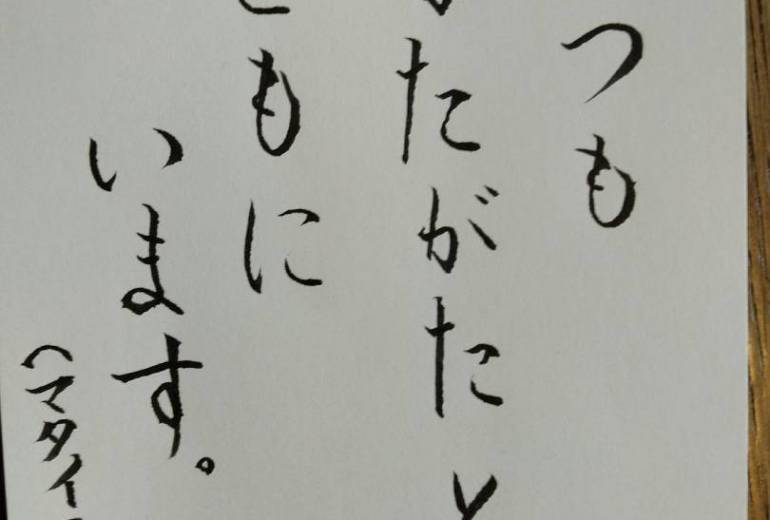 つも
たがたと
もに
います。
(マタイ